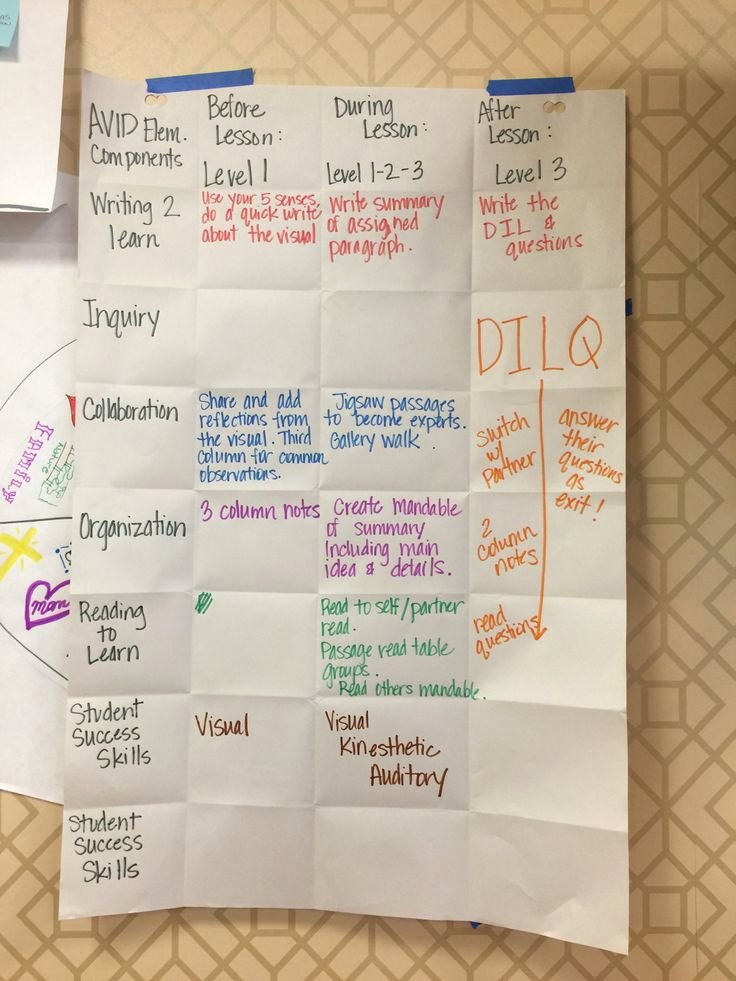 AVID Elem.
Components
Before
Lesson:
Level 1
During
Lesson:
Level 1-2-3
After
Lesson:
Level 3
Writing 2
learn
Use your 5 senses,
do a quick write
about the visual
Write summary
of assigned
paragraph.
Write the
DIL &
questions
Inquiry
DILQ
Collaboration
Share and add
reflections from
the visual. Third
column for common
observations.
Jigsaw passages
to become experts.
Gallery walk.
switch
w/
partner
answer
their
questions
as
exit!
Organization
3 column notes
Create mandable
of summary
including main
idea & details.
2
column
notes
Reading
to
Learn
Read to self/partner
read.
Passage read table
groups.
Read others mandable.
read
questions
Student
Success
Skills
Visual
Visual
Kinesthetic
Auditory
Student
Success
Skills
FAMILY
mom